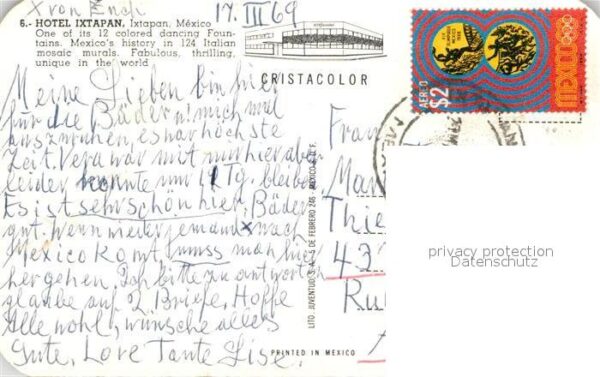 X von Euch
17. III 69
6.- HOTEL IXTAPAN, Ixtapan, México
One of its 12 colored dancing Foun-
tains. Mexico's history in 124 Italian
mosaic murals. Fabulous, thrilling,
unique in the world
CRISTACOLOR
Meine Lieben bin hier
für die Bäder u. mich mal
auszuruhen, es war höchste
Zeit. Vera war mit mir hier aber
leider konnte um 14 Tg. bleiben
Es ist sehr schön hier, Bäder
gut. Wenn wieder jemand nach
Mexico komt muss man hier
hergehen. Ich bitte zu antworten
glaube auf 2 Briefe. Hoffe
Alle wohl, wünsche alles
Gute, Love Tante Lise.
LITO JUVENTUD S. A. 5 DE FEBRERO 246 MEXICO D. F.
PRINTED IN MEXICO
Fran
Man
Thie
43
Ru
AEREO $2
privacy protection
Datenschutz